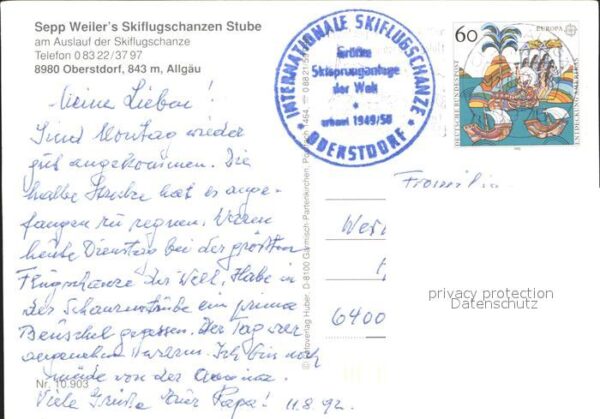 Sepp Weiler's Skiflugschanzen Stube
am Auslauf der Skiflugschanze
Telefon 0 83 22 / 37 97
8980 Oberstdorf, 843 m, Allgäu
Meine Lieben!
Sind Montag wieder
gut angekommen. Die
halbe Strecke hat es ange-
fangen zu regnen. Waren
heute Dienstag bei der größten
Flugschanze der Welt. Habe in
der Schanzenstube ein prima
Beuschel gegessen. Der Tag war
angenehm warm. Ich bin noch
müde von der
Viele Grüße Euer Papa! 11.8.92.
Nr. 10.903
INTERNATIONALE SKIFLUGSCHANZE
Größte
Skisprunganlage
der Welt
erbaut 1949/50
* OBERSTDORF *
© Fotoverlag Huber, D-8100 Garmisch-Partenkirchen,
60
EUROPA
DEUTSCHE BUNDESPOST
ENTDECKUNG AMERIKAS
1992
6400
privacy protection
Datenschutz